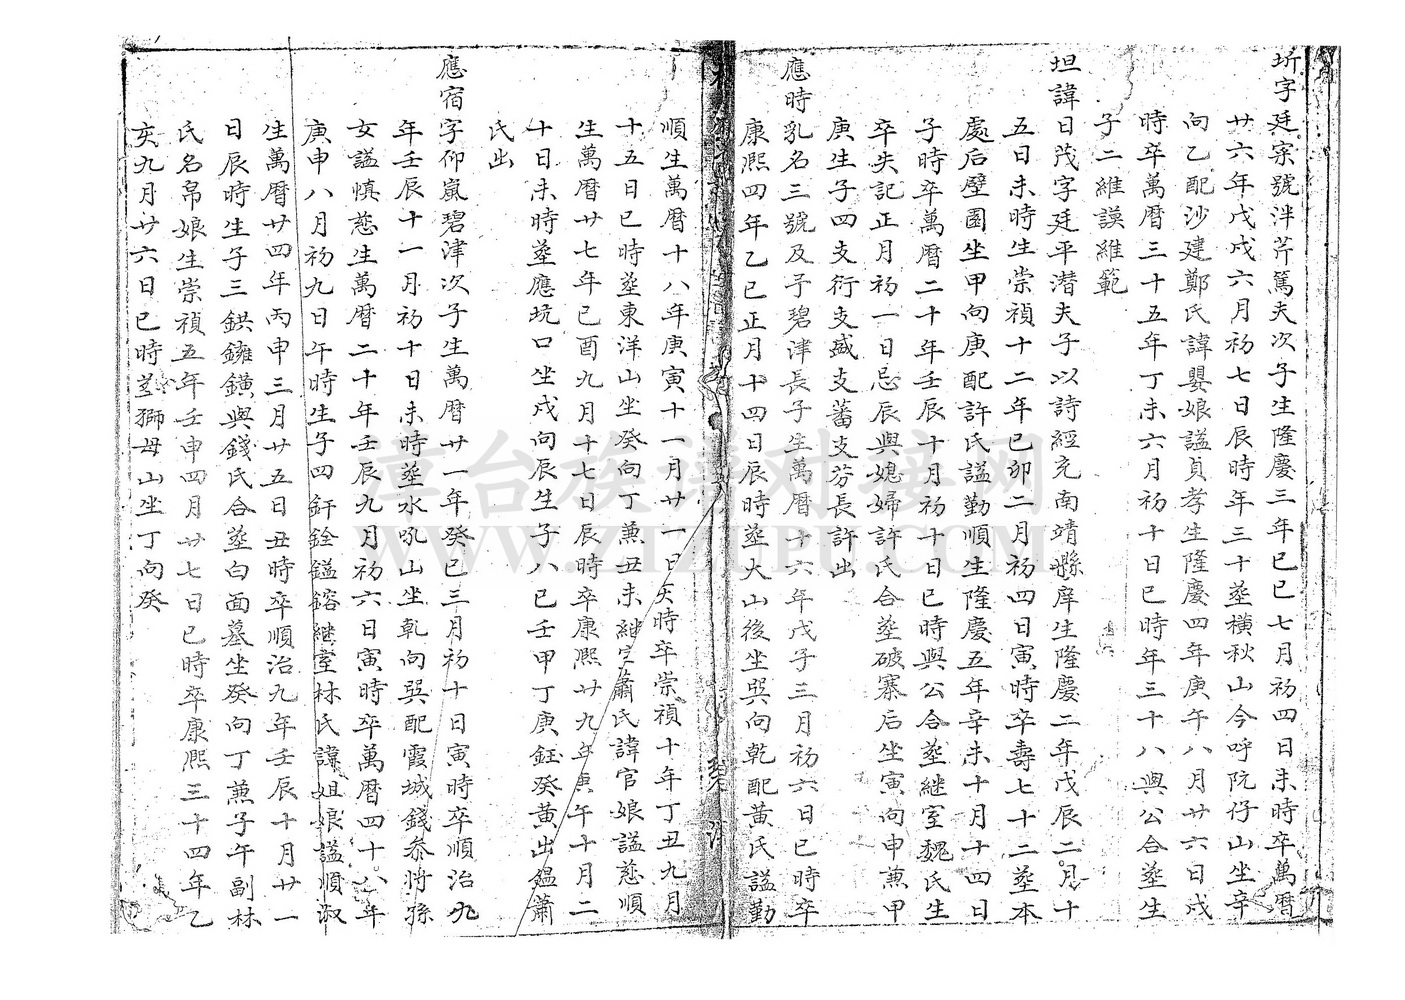 圻字廷寀號泮芹篤夫次子生隆慶三年己巳七月初四日未時卒萬曆
廿六年戊戌六月初七日辰時年三十塟橫秋山今呼阮仔山坐辛
向乙配沙建鄭氏諱嬰娘謚貞孝生隆慶四年庚午八月廿六日戌
時卒萬曆三十五年丁未六月初十日巳時年三十八與公合塟生
子二維謨維範
坦諱日茂字廷平潜夫子以詩經充南靖縣庠生隆慶二年戊辰二月十
五日未時生崇禎十二年己卯二月初四日寅時卒壽七十二塟本
處后壁園坐甲向庚配許氏謚勤順生隆慶五年辛未十月十四日
子時卒萬曆二十年壬辰十月初十日巳時與公合塟継室魏氏生
卒失記正月初一日忌辰與媳婦許氏合塟破寨后坐寅向申兼甲
庚生子四支衍支盛支蕃支芬長許出
應時乳名三號及予碧津長子生萬曆十六年戊子三月初六日巳時卒
康熙四年乙巳正月十四日辰時塟大山後坐巽向乾配黃氏謚勤
順生萬曆十八年庚寅十一月廿一日亥時卒崇禎十年丁丑九月
十五日巳時塟東洋山坐癸向丁兼丑未継室蕭氏諱官娘謚慈順
生萬曆廿七年己酉九月十七日辰時卒康熙廿九年庚午十月二
十日未時塟應坑口坐戌向辰生子八己壬甲丁庚鈺癸黃出鎾蕭
氏出
應宿字仰嵐碧津次子生萬曆廿一年癸巳三月初十日寅時卒順治九
年壬辰十一月初十日未時塟水吼山坐乹向巽配霞城錢叅將孫
女謚慎慈生萬曆二十年壬辰九月初六日寅時卒萬曆四十八年
庚申八月初九日午時生子四釬銓鎰鎔継室林氏諱姐娘謚順淑
生萬曆廿四年丙申三月廿五日丑時卒順治九年壬辰十月廿一
日辰時生子三鉷鏞鐄與錢氏合塟白面墓坐癸向丁兼子午副林
氏名帛娘生崇禎五年壬申四月廿七日巳時卒康熙三十四年乙
亥九月廿六日巳時塟獅母山坐丁向癸
漳台族谱对接网
WWW.ZTZUPU.COM